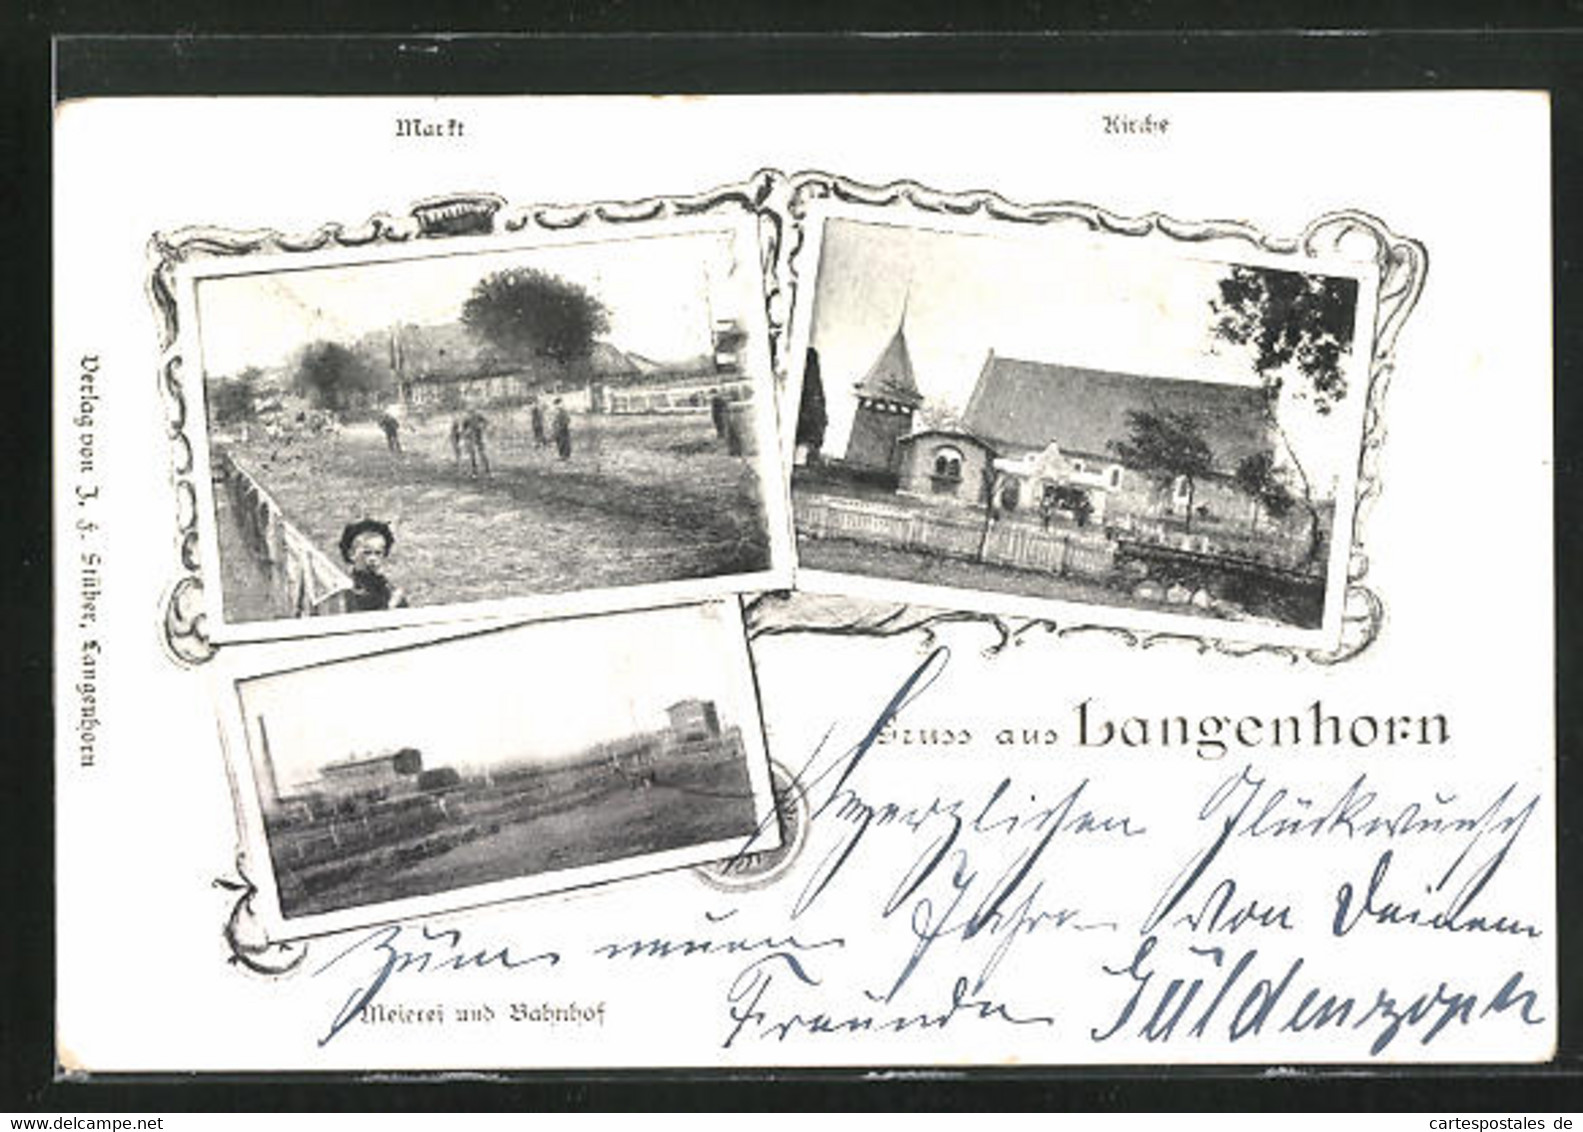 Markt
Kirche
Verlag von J. F. Stüber, Langenhorn
Gruss aus Langenhorn
Herzlichen Glückwunsch
zum neuen Jahre von Deinem
Freunde Güldenzopf
Meierei und Bahnhof
delcampe.net
cartespostales de